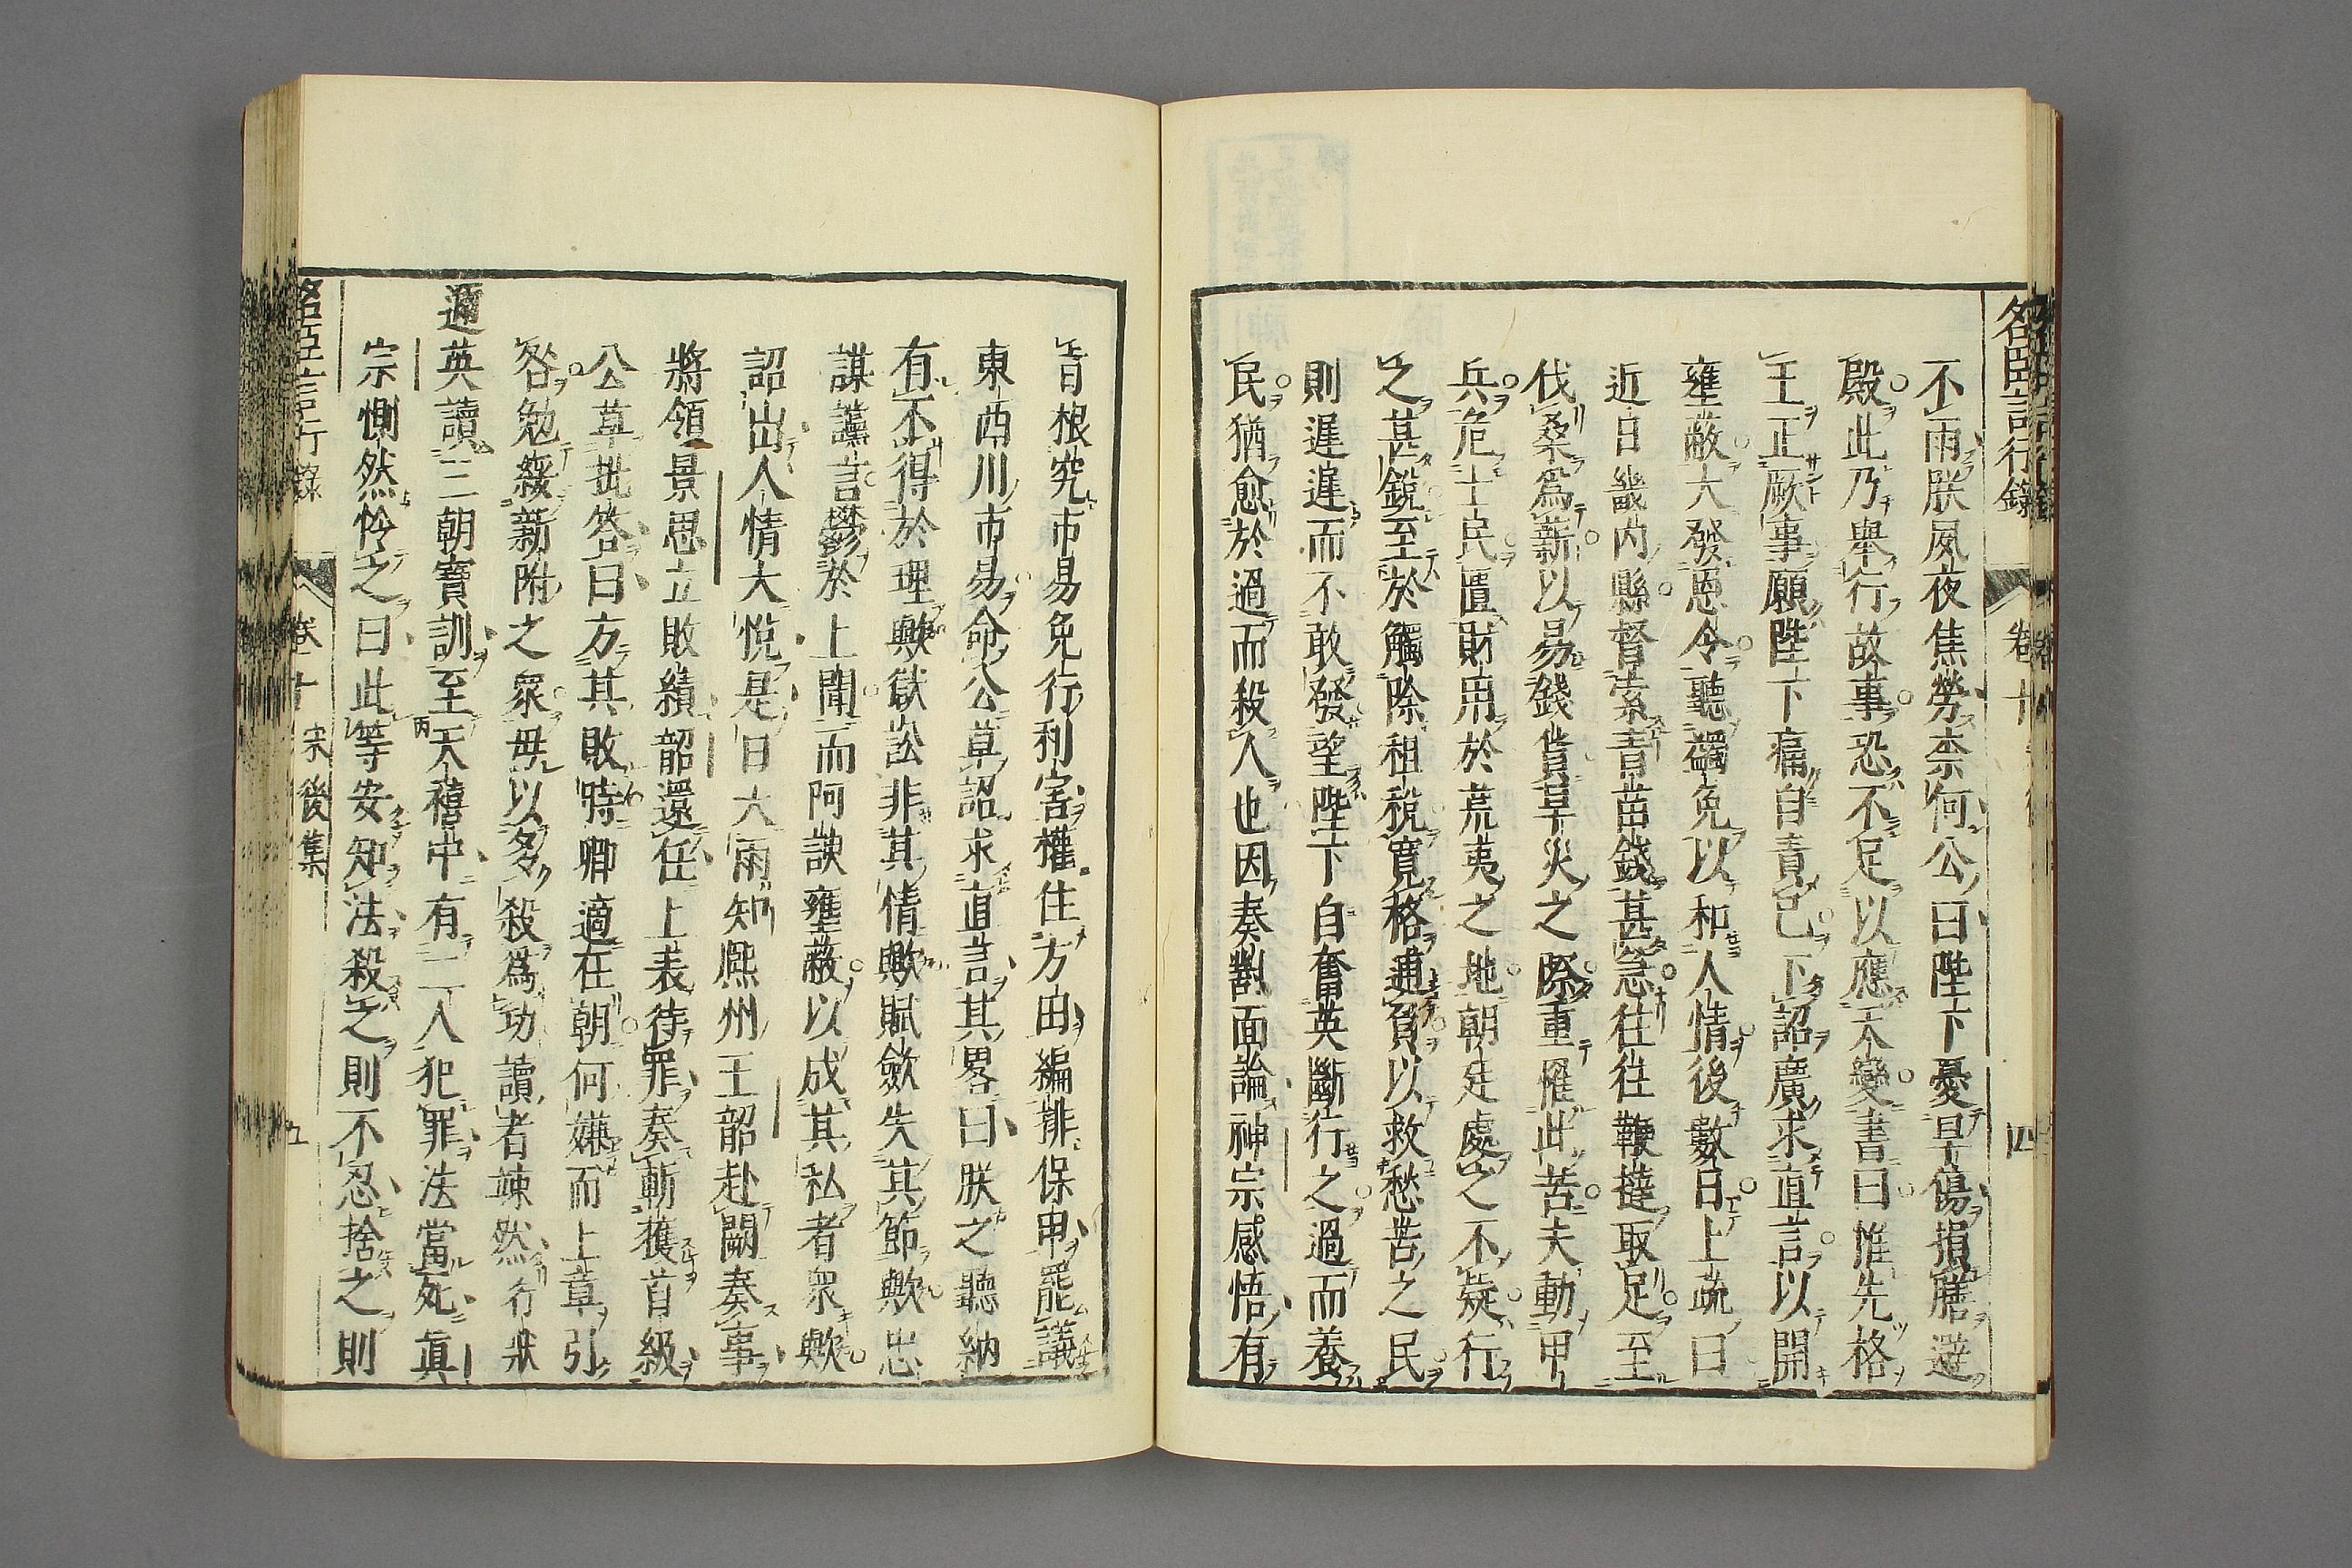 名臣言行錄 卷十 四
不雨朕夙夜焦勞柰何公曰陛下憂旱傷損膳避
殿此乃舉行故事恐不足以應天變書曰惟先格
王正厥事願陛下痛自責已下詔廣求直言以開
壅蔽大發恩令聽蠲免以和人情後數日上疏曰
近日畿内縣督索青苗錢甚急往往鞭撻取足至
伐桑爲薪以易錢貨旱災之際重罹此苦夫動甲
兵危士民匱財用於荒夷之地朝廷處之不疑行
之甚銳至於蠲除租稅寬格逋負以救愁苦之民
則遲遲而不敢發望陛下自奮英斷行之過而養
民猶愈於過而殺人也因奏對面論神宗感悟有
旨根究市易免行利害權住方田編排保甲罷議
東西川市易命公草詔求直言其畧曰朕之聽納
有不得於理歟獄訟非其情歟賦斂失其節歟忠
謀讜言鬱於上聞而阿諛壅蔽以成其私者衆歟
詔出人情大悅是日大雨知熙州王韶赴闕奏事
將領景思立敗績韶還任上表待罪奏斬獲首級
公草批答曰方其敗時卿適在朝何嫌而上章引
咎勉綏新附之衆毋以多殺爲功讀者竦然行狀
邇英讀三朝寶訓至天禧中有二人犯罪法當死眞
宗惻然怜之曰此等安知法殺之則不忍捨之則
名臣言行錄 卷十 宋後集 五